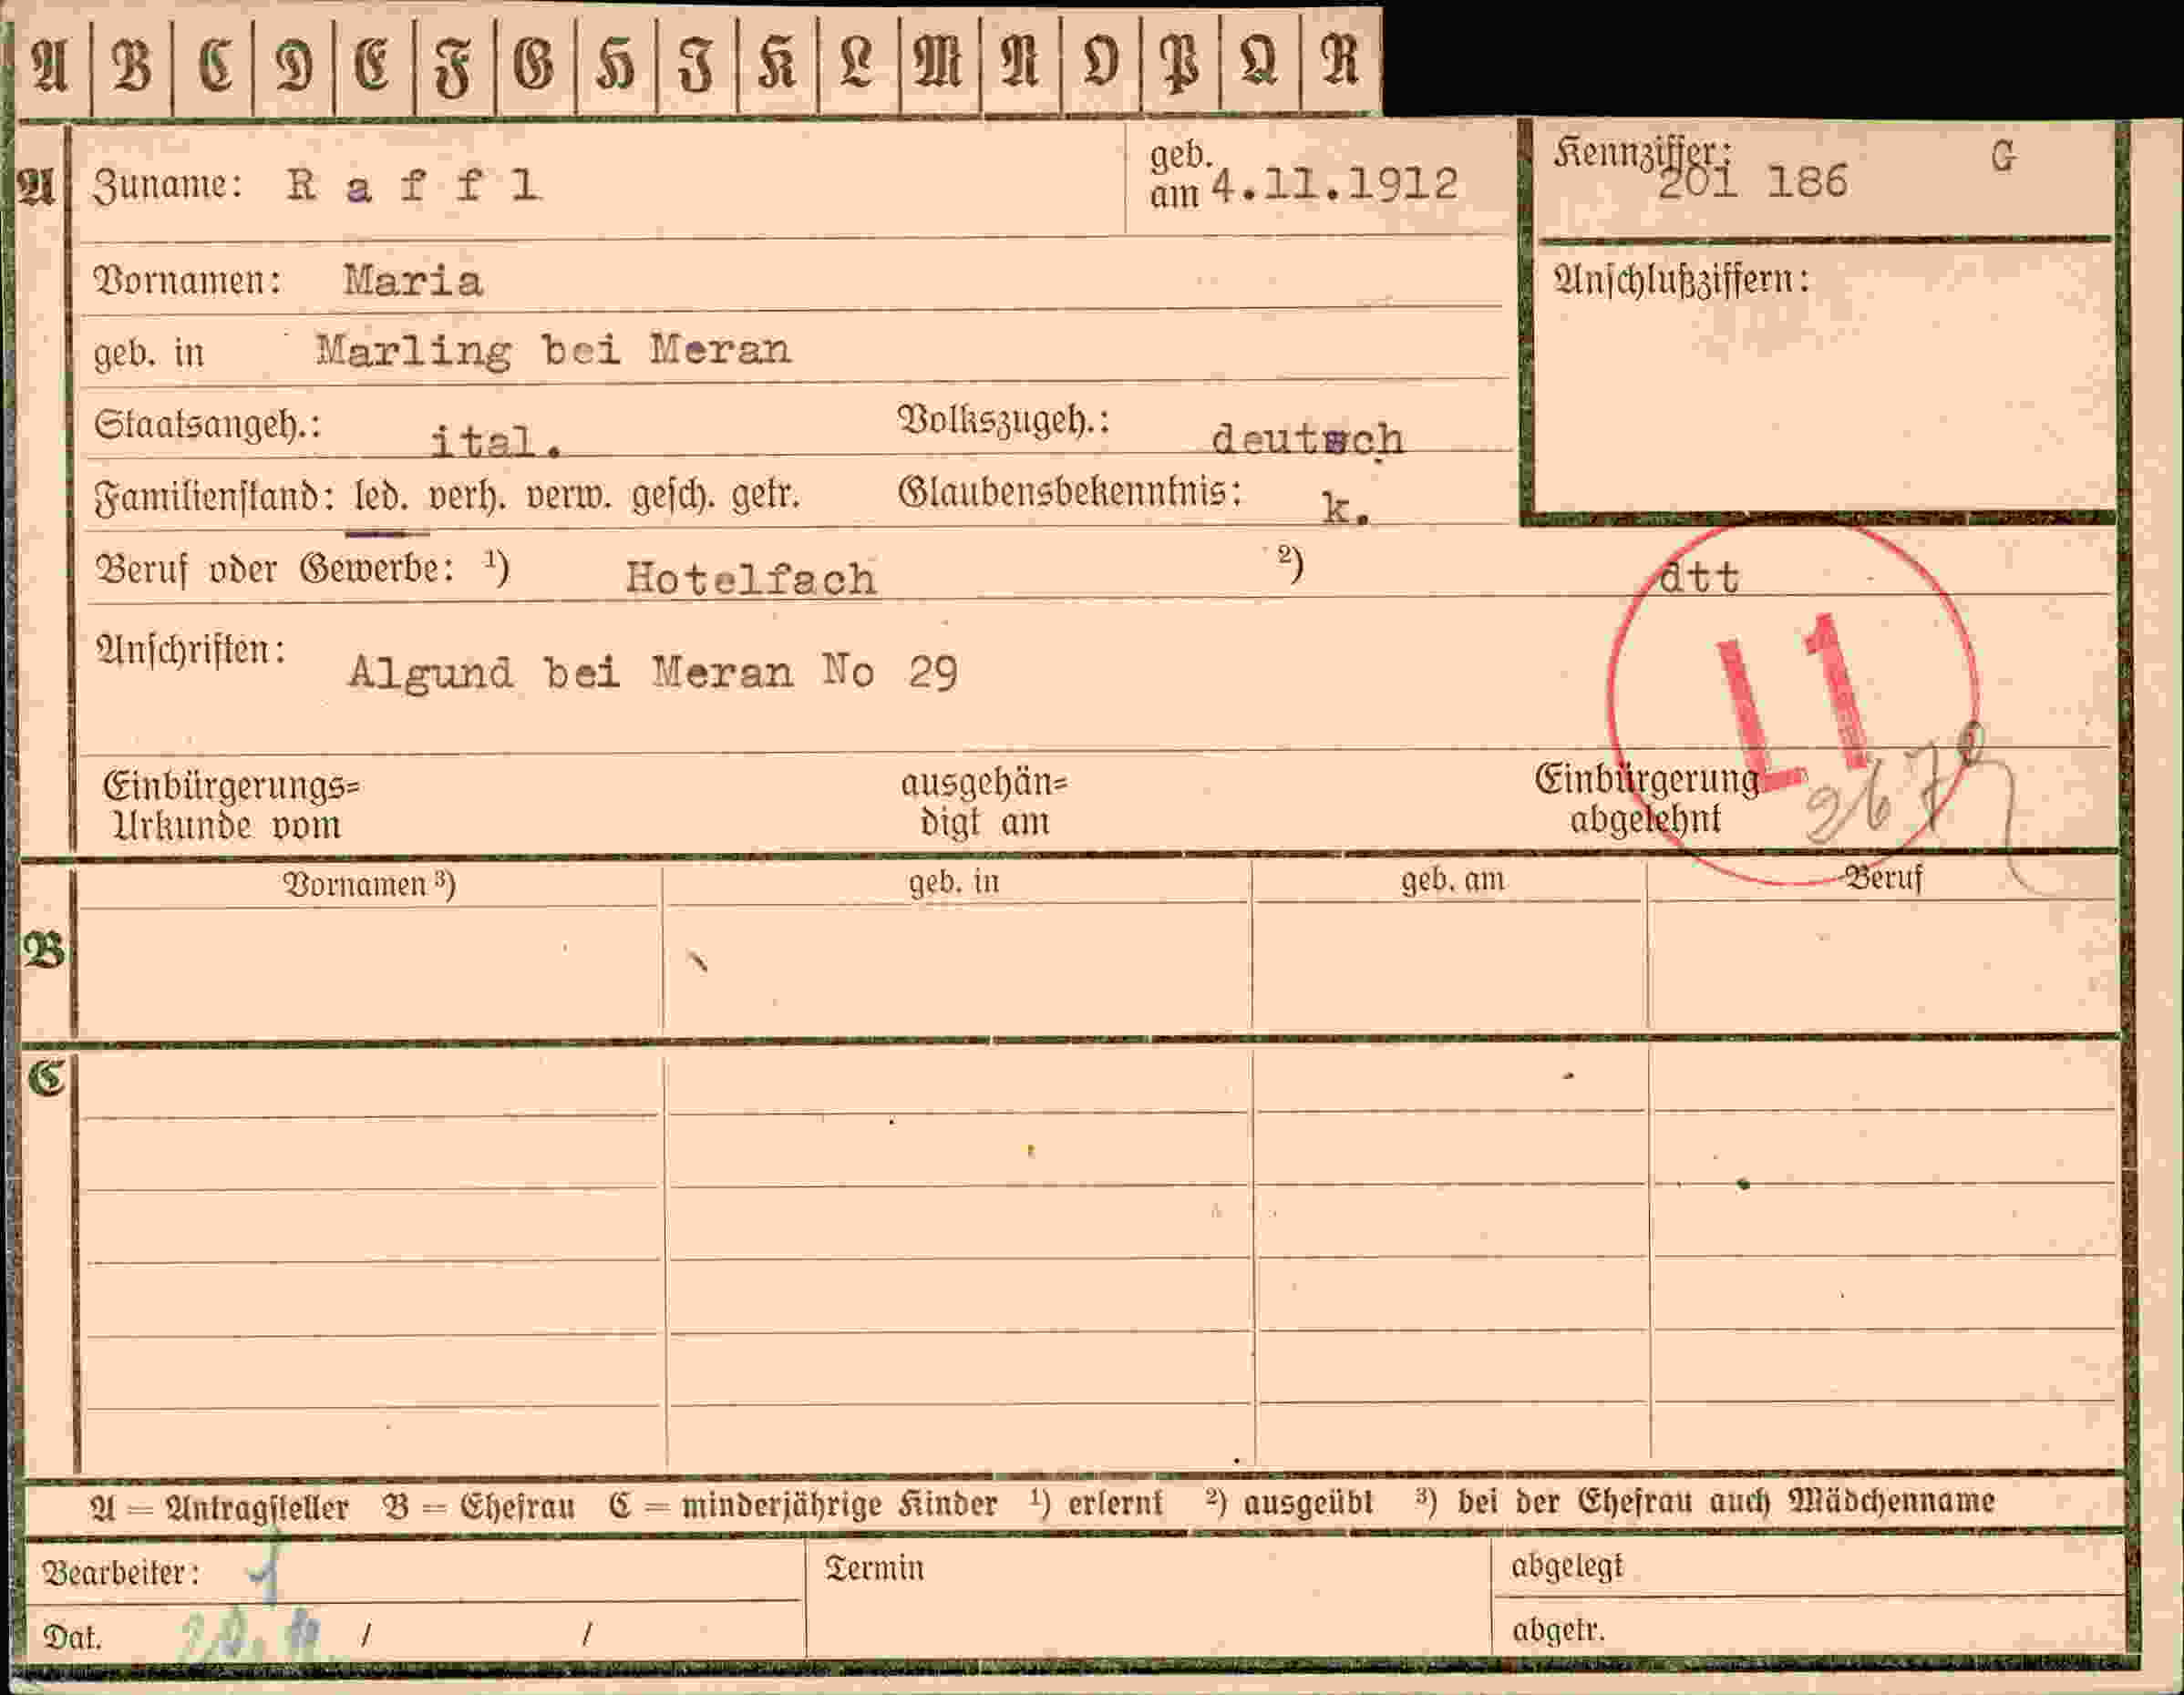 A B C D E F G H I K L M N O P Q R
A Zuname: Raffl geb. am 4.11.1912 Kennziffer: 201 186 G
Vornamen: Maria Anschlußziffern:
geb. in Marling bei Meran
Staatsangeh.: ital. Volkszugeh.: deutsch
Familienstand: led. verh. verw. gesch. getr. Glaubensbekenntnis: k.
Beruf oder Gewerbe: ¹) Hotelfach ²) dtt
Anschriften: Algund bei Meran No 29
L1
Einbürgerungs= ausgehän= Einbürgerung
Urkunde vom digt am abgelehnt
Vornamen ³) geb. in geb. am Beruf
B
C
A = Antragsteller B = Ehefrau C = minderjährige Kinder ¹) erlernt ²) ausgeübt ³) bei der Ehefrau auch Mädchenname
Bearbeiter: Termin abgelegt
Dat. / / abgetr.